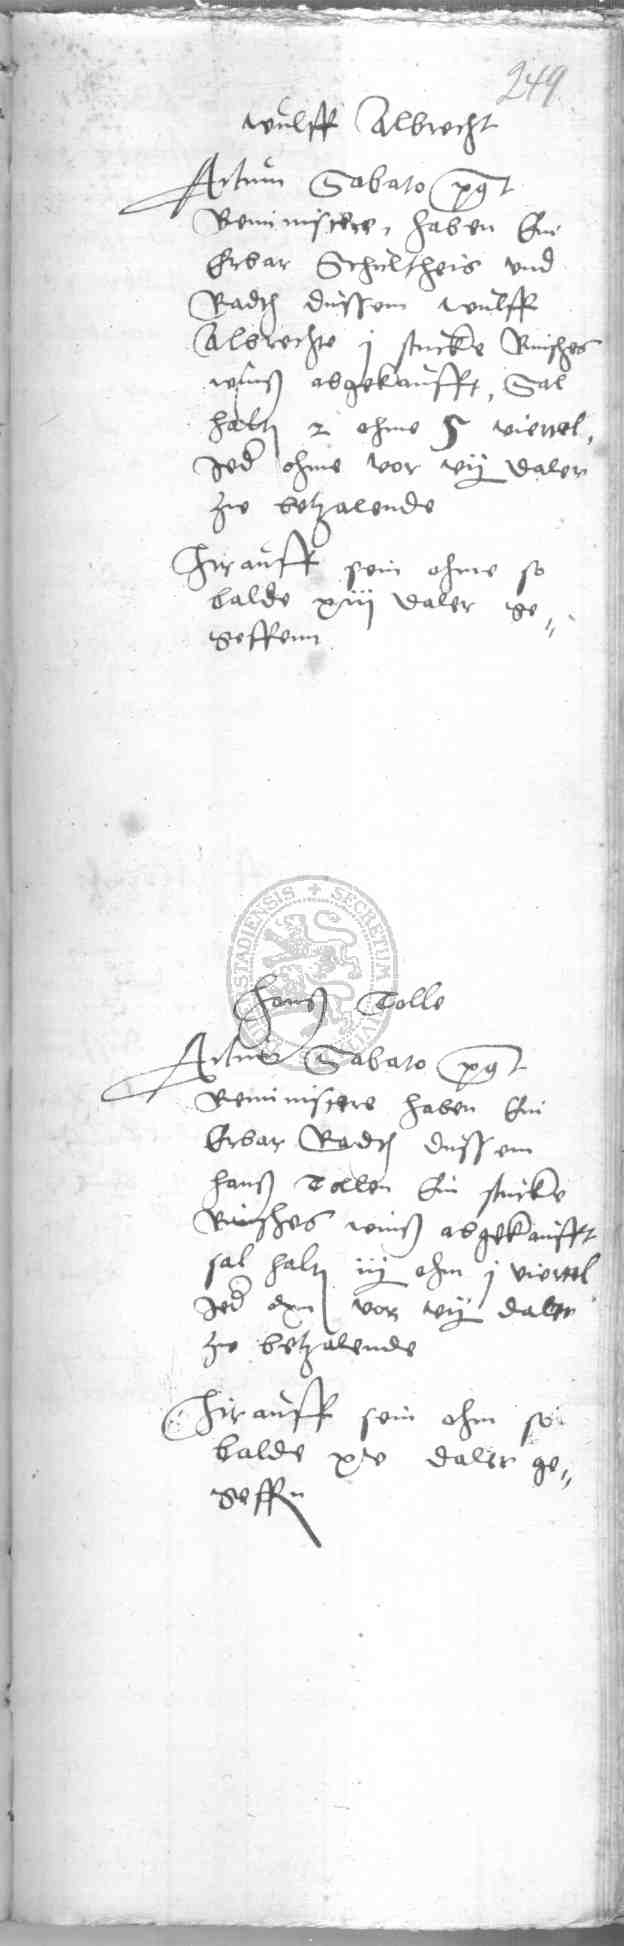 249
wulff Albrecht
Actum Sabato pgt
Reminiscere, haben Ein
Erbar Schultheis und
Radth dussem wulff
Albrechte j stucke Rinsches
winß abgekaufft, Sal
haltn 2 ohme 5 viertel,
Jed ohme vor vij daler
zu betzalende
Hirauff sein ohme so
balde xiij daler ge„
geffenn
STADIENSIS + SECRETUM
Hanß Tolle
Actum Sabato pgt
Reminiscere haben Ein
Erbar Radth dussem
Hanß Tollen Ein stucke
Rinsches winß abgekaufft
sal haltn iij ohm j viertel
Jed ohm vor vij daler
zu betzalende
Hirauff sein ohm so
balde xv daler ge„
geffn